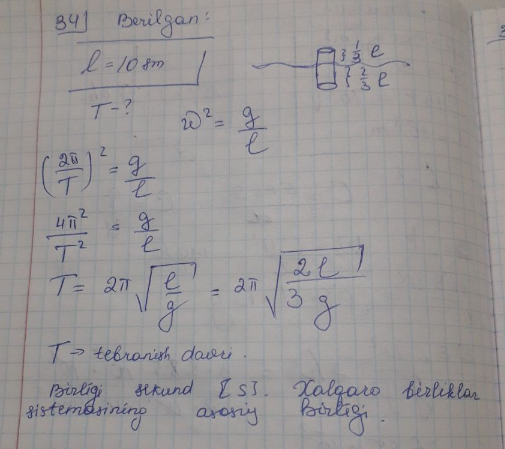 34) Berilgan:
l = 10 sm
T - ?
}⅓ l
}⅔ l
ω² = g/l
(2π/T)² = g/l
4π²/T² = g/l
T = 2π√(l/g) = 2π√(2l/3g)
T → tebranish davri.
Birligi sekund [S]. Xalqaro birliklar
sistemasining asosiy birligi.